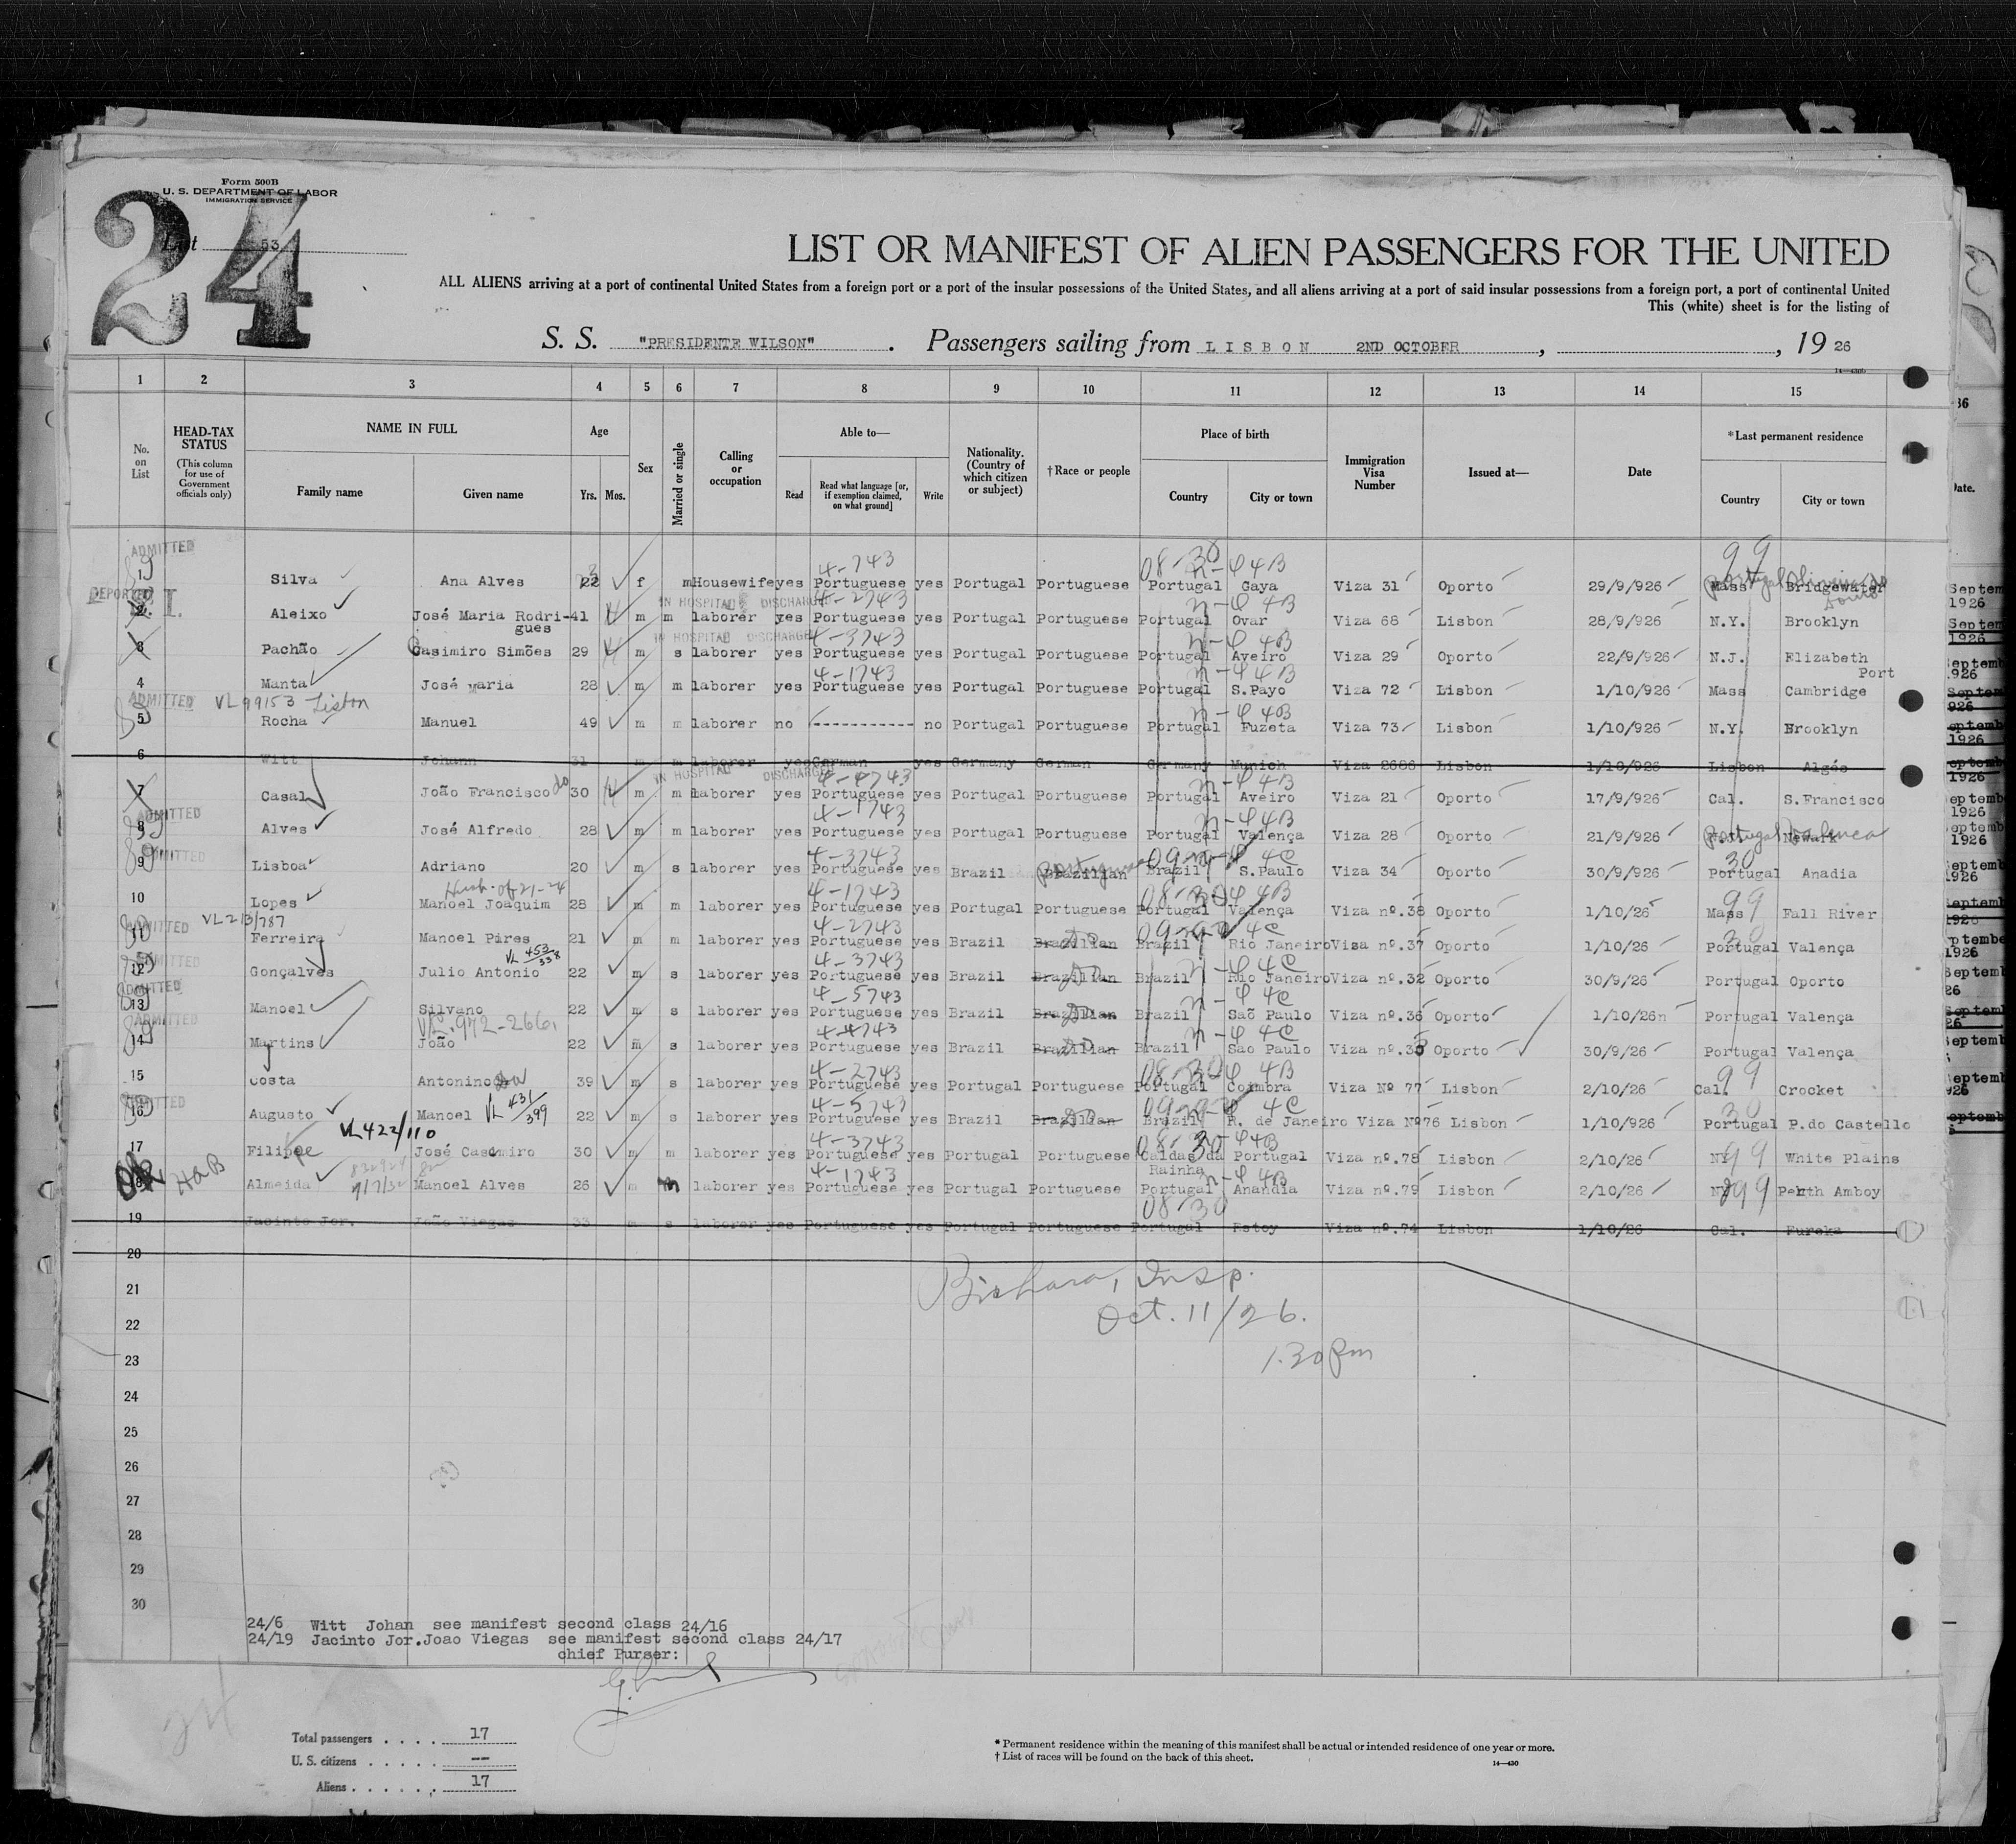 24
Form 500B
U. S. DEPARTMENT OF LABOR
IMMIGRATION SERVICE
List 53
LIST OR MANIFEST OF ALIEN PASSENGERS FOR THE UNITED
ALL ALIENS arriving at a port of continental United States from a foreign port or a port of the insular possessions of the United States, and all aliens arriving at a port of said insular possessions from a foreign port, a port of continental United
This (white) sheet is for the listing of
S. S. "PRESIDENTE WILSON". Passengers sailing from LISBON 2ND OCTOBER, , 19 26
1 2 3 4 5 6 7 8 9 10 11 12 13 14 15
No. on List
HEAD-TAX STATUS (This column for use of Government officials only)
NAME IN FULL Family name Given name
Age Yrs. Mos.
Sex
Married or single
Calling or occupation
Able to— Read Read what language [or, if exemption claimed, on what ground] Write
Nationality. (Country of which citizen or subject)
†Race or people
Place of birth Country City or town
Immigration Visa Number
Issued at—
Date
*Last permanent residence Country City or town
ADMITTED 4-743 08-30 n-4 4B 99
1 Silva Ana Alves 22 f m Housewife yes Portuguese yes Portugal Portuguese Portugal Gaya Viza 31 Oporto 29/9/926 Mass Portugal Bridgewater
DEPORTED IN HOSPITAL DISCHARGED 4-2743 n-4 4B
2 Aleixo José Maria Rodri-gues 41 m m laborer yes Portuguese yes Portugal Portuguese Portugal Ovar Viza 68 Lisbon 28/9/926 N.Y. Brooklyn
IN HOSPITAL DISCHARGED 4-3743 n-4 4B
3 Pachão Casimiro Simões 29 m s laborer yes Portuguese yes Portugal Portuguese Portugal Aveiro Viza 29 Oporto 22/9/926 N.J. Elizabeth Port
4-1743 n-4 4B
4 Manta José Maria 28 m m laborer yes Portuguese yes Portugal Portuguese Portugal S.Payo Viza 72 Lisbon 1/10/926 Mass Cambridge
ADMITTED VL 99153 Lisbon n-4 4B
5 Rocha Manuel 49 m m laborer no ----------- no Portugal Portuguese Portugal Fuzeta Viza 73 Lisbon 1/10/926 N.Y. Brooklyn
6 Witt Johann 31 m m laborer yes German yes Germany German Germany Munich Viza 2686 Lisbon 1/10/926 Lisbon Algés
IN HOSPITAL DISCHARGED 4-4743 n-4 4B
7 Casal João Francisco do 30 m m laborer yes Portuguese yes Portugal Portuguese Portugal Aveiro Viza 21 Oporto 17/9/926 Cal. S.Francisco
ADMITTED 4-1743 n-4 4B
8 Alves José Alfredo 28 m m laborer yes Portuguese yes Portugal Portuguese Portugal Valença Viza 28 Oporto 21/9/926 Portugal Newark Valença
ADMITTED 4-3743 09-n-4 4C 30
9 Lisboa Adriano 20 m s laborer yes Portuguese yes Brazil Brazilian Portuguese Brazil S.Paulo Viza 34 Oporto 30/9/926 Portugal Anadia
Husb. of 21-24 4-1743 08-30 4 4B 99
10 Lopes Manoel Joaquim 28 m m laborer yes Portuguese yes Portugal Portuguese Portugal Valença Viza nº.38 Oporto 1/10/26 Mass Fall River
ADMITTED VL 213/787 4-2743 4C 30
11 Ferreira Manoel Pires 21 m m laborer yes Portuguese yes Brazil Brazilian Do Brazil Rio Janeiro Visa nº.37 Oporto 1/10/26 Portugal Valença
ADMITTED VL 453/338 4-3743 n-4 4C
12 Gonçalves Julio Antonio 22 m s laborer yes Portuguese yes Brazil Brazilian Do Brazil Rio Janeiro Viza nº.32 Oporto 30/9/26 Portugal Oporto
ADMITTED 4-5743 n-4 4C
13 Manoel Silvano 22 m s laborer yes Portuguese yes Brazil Brazilian Do Brazil Saõ Paulo Viza nº.36 Oporto 1/10/26n Portugal Valença
ADMITTED VL.972-2661 4-4743 n-4 4C
14 Martins João 22 m s laborer yes Portuguese yes Brazil Brazilian Do Brazil Sao Paulo Viza nº.35 Oporto 30/9/26 Portugal Valença
4-2743 08-30 4 4B 99
15 Costa Antonino da 39 m s laborer yes Portuguese yes Portugal Portuguese Portugal Coimbra Viza Nº 77 Lisbon 2/10/26 Cal. Crocket
ADMITTED VL 431/399 4-5743 4C 30
16 Augusto Manoel 22 m s laborer yes Portuguese yes Brazil Brazilian Do Brazil R. de Janeiro Viza Nº76 Lisbon 1/10/926 Portugal P.do Castello
VL422/110 4-3743 08-30 4B 99
17 Filippe José Casemiro 30 m m laborer yes Portuguese yes Portugal Portuguese Caldas da Rainha Portugal Viza nº.78 Lisbon 2/10/26 NY White Plains
OK HaB 7/7/32 4-1743 n-4 4B 99
18 Almeida Manoel Alves 26 m m laborer yes Portuguese yes Portugal Portuguese Portugal Anandia Viza nº.79 Lisbon 2/10/26 Perth Amboy
08-30
19 Jacinto Jor. João Viegas 33 m s laborer yes Portuguese yes Portugal Portuguese Portugal Estoy Viza nº.74 Lisbon 1/10/26 Cal. Eureka
20
21
Oct. 11/26.
22
1.30 pm
23
24
25
26
27
28
29
30
24/6 Witt Johan see manifest second class 24/16
24/19 Jacinto Jor.Joao Viegas see manifest second class 24/17
chief Purser:
24
Total passengers . . . . 17
U. S. citizens . . . . . --
Aliens . . . . . . 17
* Permanent residence within the meaning of this manifest shall be actual or intended residence of one year or more.
† List of races will be found on the back of this sheet.
14—430